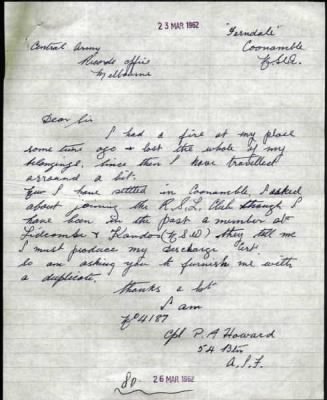 23 MAR 1962
"Ferndale"
Coonamble
N.S.W.
"Central Army
Records Office
Melbourne
Dear Sir
I had a fire at my place
some time ago & lost the whole of my
belongings. Since then I have travelled
arround a bit.
Now I have settled in Coonamble, I asked
about joining the R.S.L. Club though I
have been in the past a member at
Lidcombe & Kandos (N.S.W) they tell me
I must produce my discharge Cert.
So am asking you to furnish me with
a duplicate.
thanks a lot
I am
No 4187
Cpl P. A Howard
54 Btn
A.I.F.
26 MAR 1962